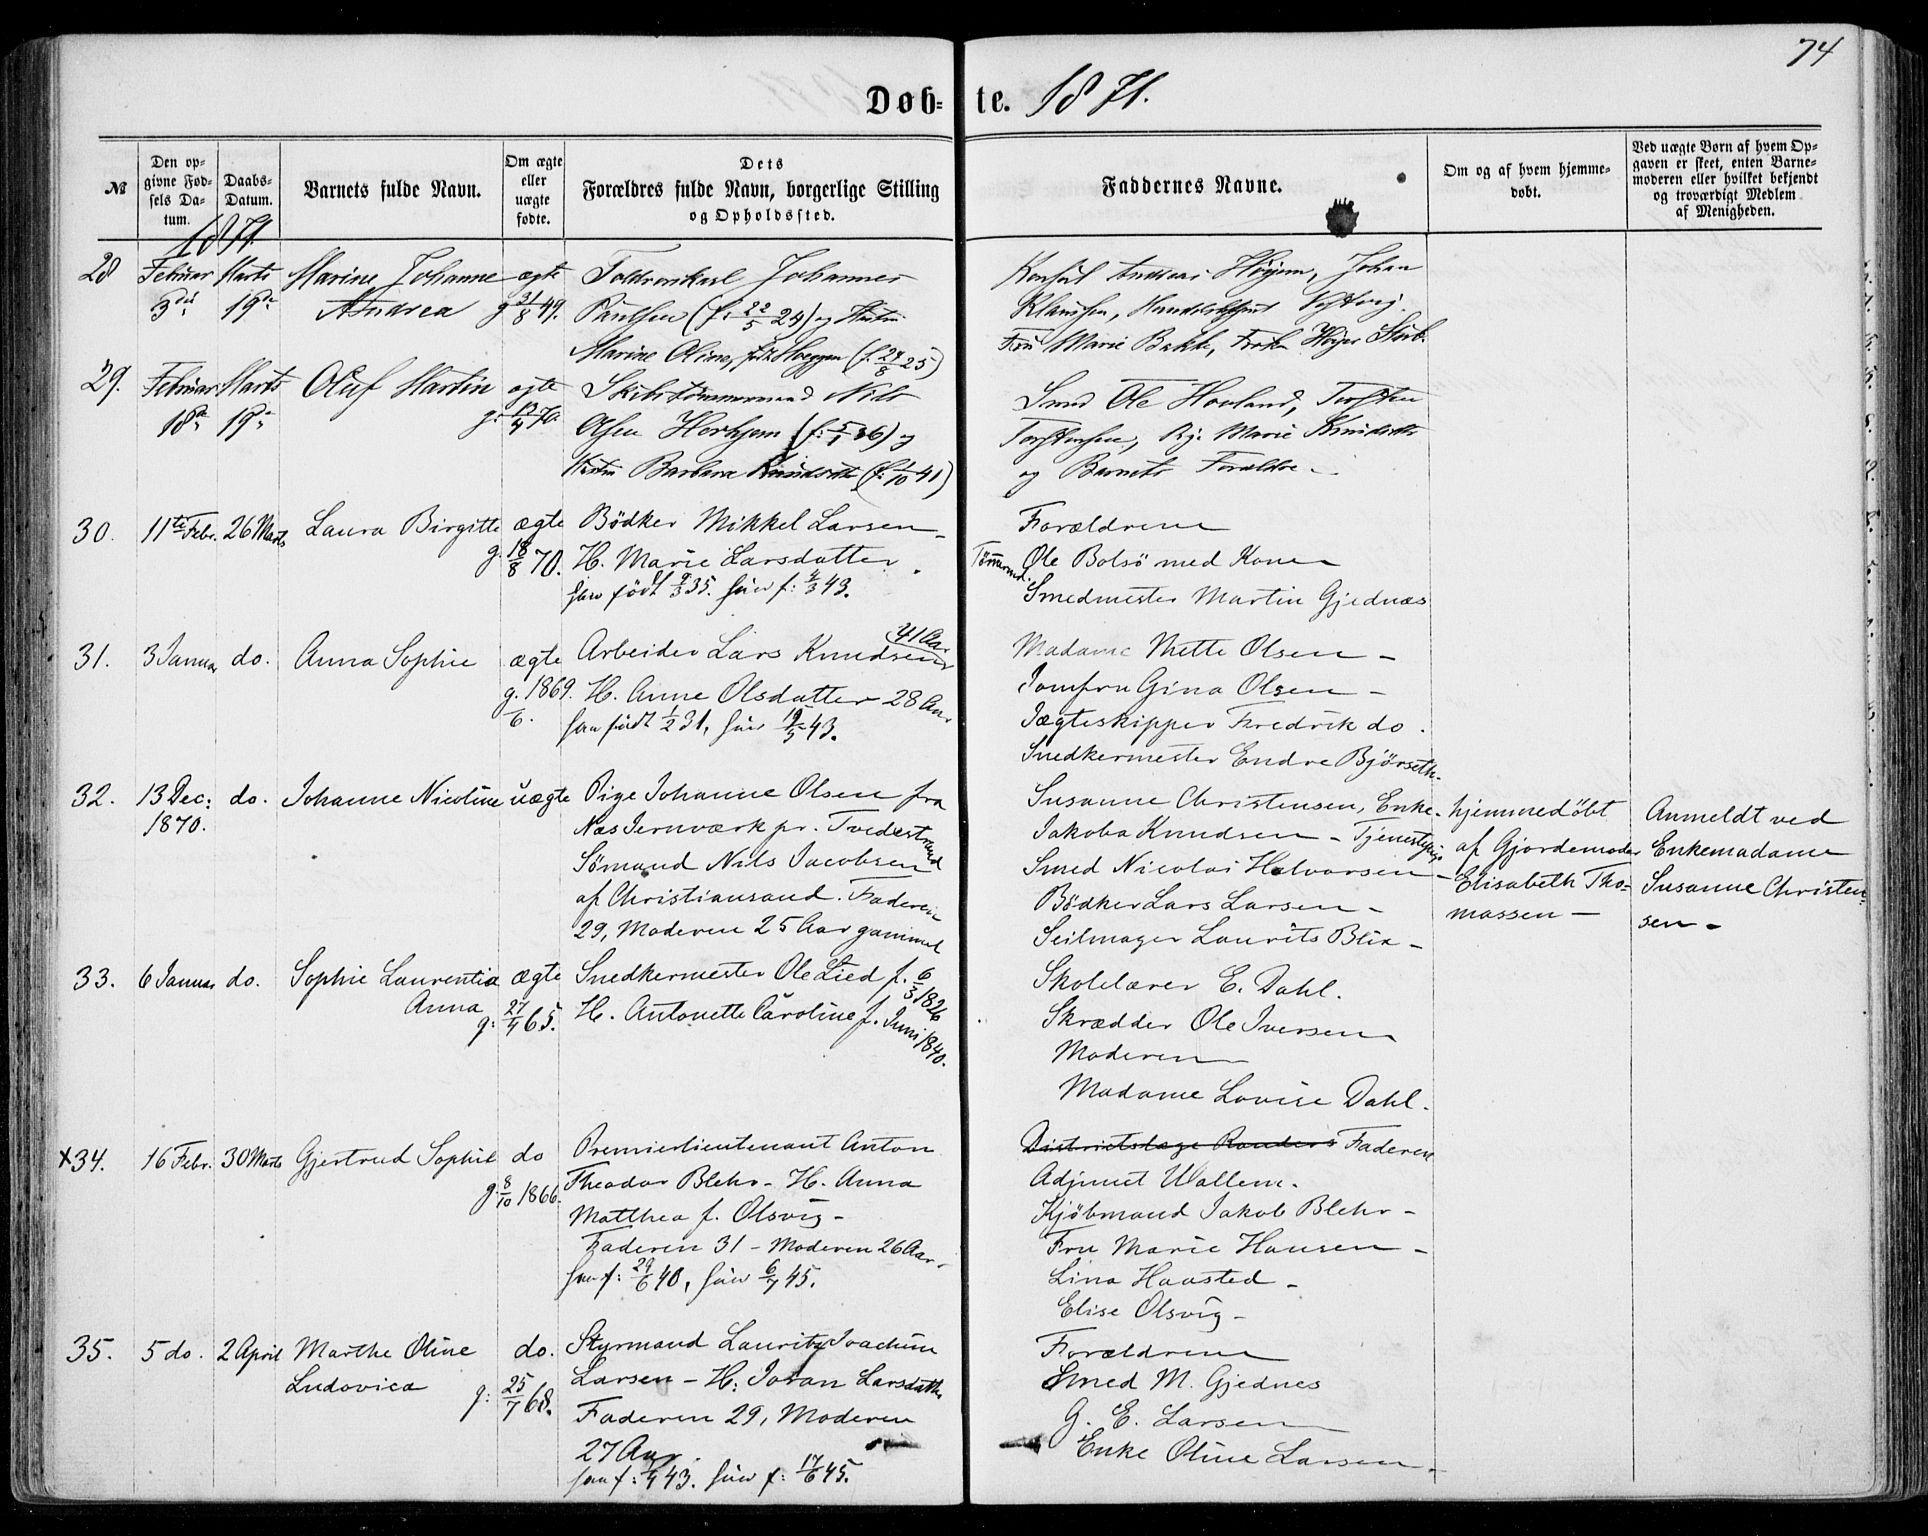 74
Døb- te. 1871.
№
Den op-
givne Fød-
sels Da-
tum.
Daabs-
Datum.
Barnets fulde Navn.
Om ægte
eller
uægte
fødte.
Dets
Forældres fulde Navn, borgerlige Stilling
og Opholdssted.
Faddernes Navne.
Om og af hvem hjemme-
døbt.
Ved uægte Børn af hvem Op-
gaven er skeet, enten Barne-
moderen eller hvilket bekjendt
og troværdigt Medlem
af Menigheden.
1871.
28 Februar Marts Marine Johanne ægte Toldrorskarl Johannes
3die 19de Andrea g 31/8 49. (f: 22/5 24) og Hustru
Marine Oline, (f. 24/8 25)
Konsul Andreas Høyem, Johan
Klausen,
Fru Marie Bakke, Frøken
29. Februar Marts Oluf Martin ægte Skibstømmermand Nils
18de 19de g: 70. Olsen (f: 5/1 36) og
Hustru Barbara Knudsdtr (f: 1/10 41)
Smed Ole Hovland, Torsten
Torstensen, Pige Marie Knudsdtr
og Barnets Forældre.
30. 11te Febr. 26 Marts Laura Birgitte ægte Bødker Mikkel Larsen -
g. 18/8 70. H. Marie Larsdatter.
han født 9/3 35. hun f: 4/3 43.
Forældrene
Tømmermd. Ole Bolsø med Kone
Smedmester Martin Gjednæs
31. 3 Januar do. Anna Sophie ægte Arbeider Lars Knudsen 41 Aar
g. 1869. H. Anne Olsdatter 28 Aar
6. han født 1/2 31, hun 19/3 43.
Madame Mette Olsen -
Jomfru Gina Olsen -
Jægteskipper Fredrik do.
Snedkermester Endre Bjørseth.
32. 13 Dec: do. Johanne Nicoline uægte Pige Johanne Olsen fra
1870. Næs Jernværk pr. Tvedestrand
Sømand Nils Jacobsen
af Christiansand. Faderen
29, Moderen 25 Aar gammel
Susanne Christensen, Enke -
Jakoba Knudsen - Tjenestepige
Smed Nicolai Halvorsen -
Bødker Lars Larsen -
Seilmager Laurits Blix -
hjemmedøbt
af Gjordemoder
Elisabeth Tho-
massen -
Anmeldt ved
Enkemadame
Susanne Christen-
sen -
33. 6 Januar do. Sophie Laurentia ægte Snedkermester Ole Lied f. 6/3 1826
Anna g: 27/4 65. H. Antonette Caroline f. Juni 1840.
Skolelærer E. Dahl.
Skrædder Ole Iversen
Moderen
Madame Lovise Dahl.
x34. 16 Febr. 30 Marts Gjertrud Sophie do Premierlieutenant Anton
g: 8/10 1866. Theodor Blehr - H. Anna
Matthea f. Olsvig -
Faderen 31 - Moderen 26 Aar -
han f: 29/6 40, hun 6/7 45.
Districtslæge Randers Faderen
Adjunct Wallem.
Kjøbmand Jakob Blehr -
Fru Marie Hansen -
Lina Haasted -
Elise Olsvig -
35. 5 do. 2 April Marthe Oline do. Styrmand Lauritz Joachim
Ludovica g: 25/7 68. Larsen - H: Joran Larsdatter
Faderen 29, Moderen
27 Aar.
han f: 43. hun f: 17/6 45.
Forældrene
Smed M. Gjednes
G. E. Larsen
Enke Oline Larsen -